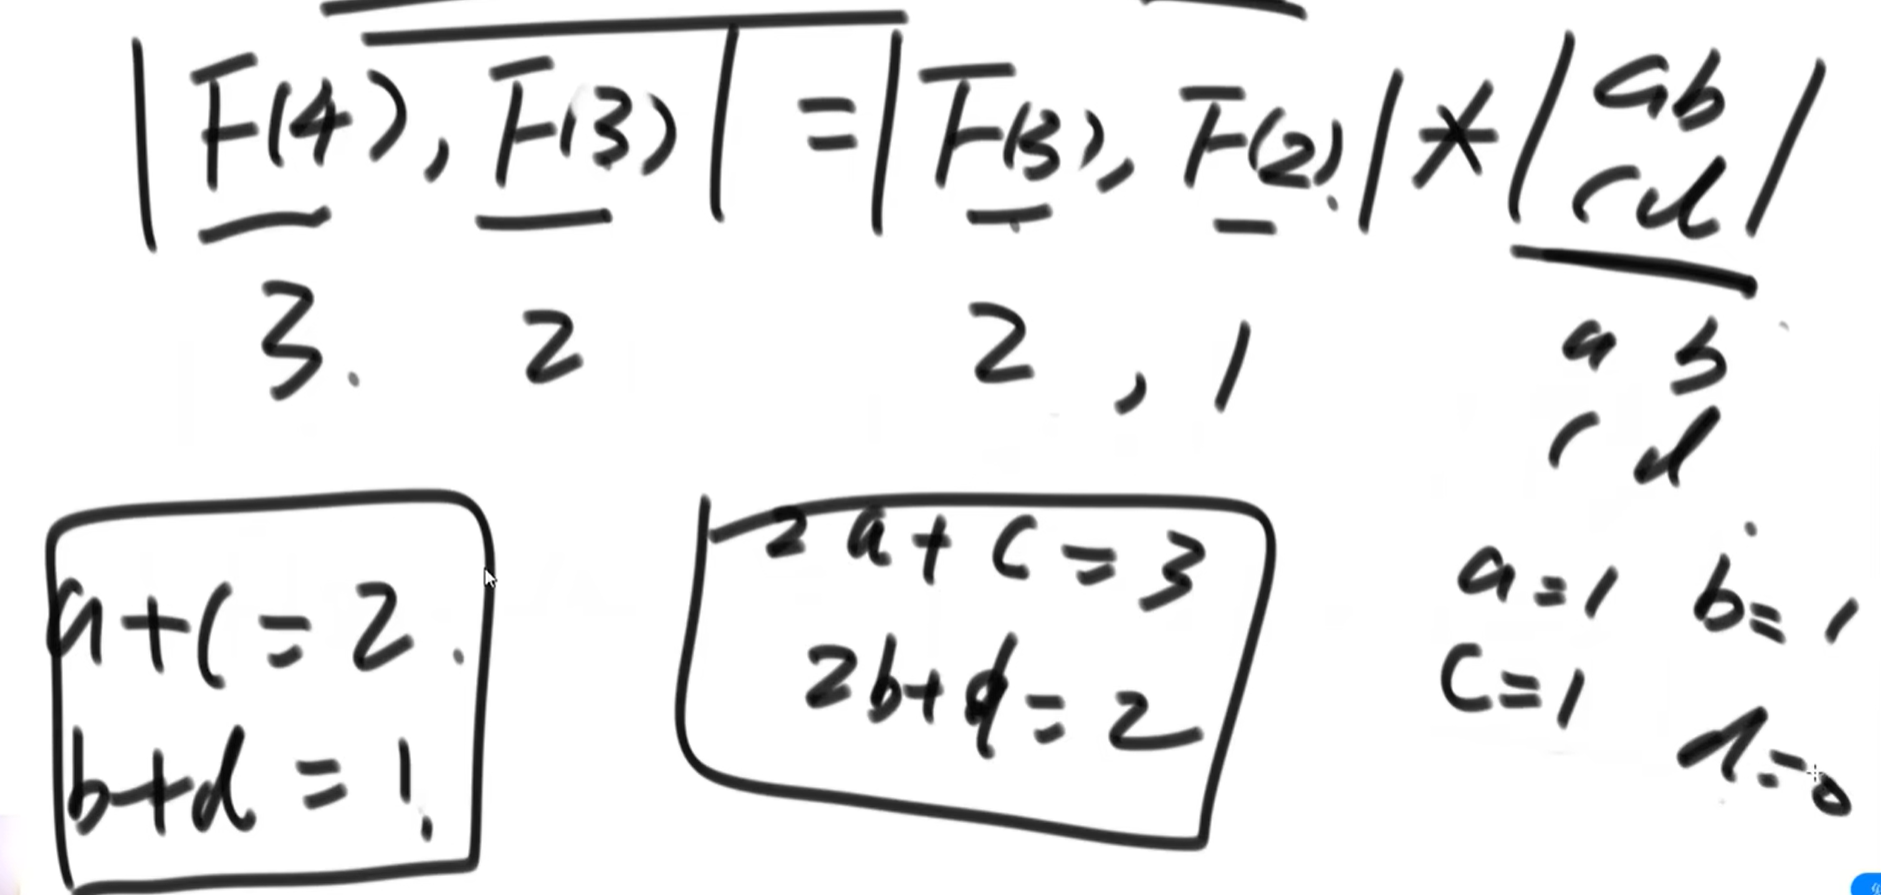 |F(4), F(3)| = |F(3), F(2)| * |a b
c d|
3. 2 2 , 1 a b
c d
a+c=2.
b+d=1.
2a+c=3
2b+d=2
a=1 b=1
c=1 d=0